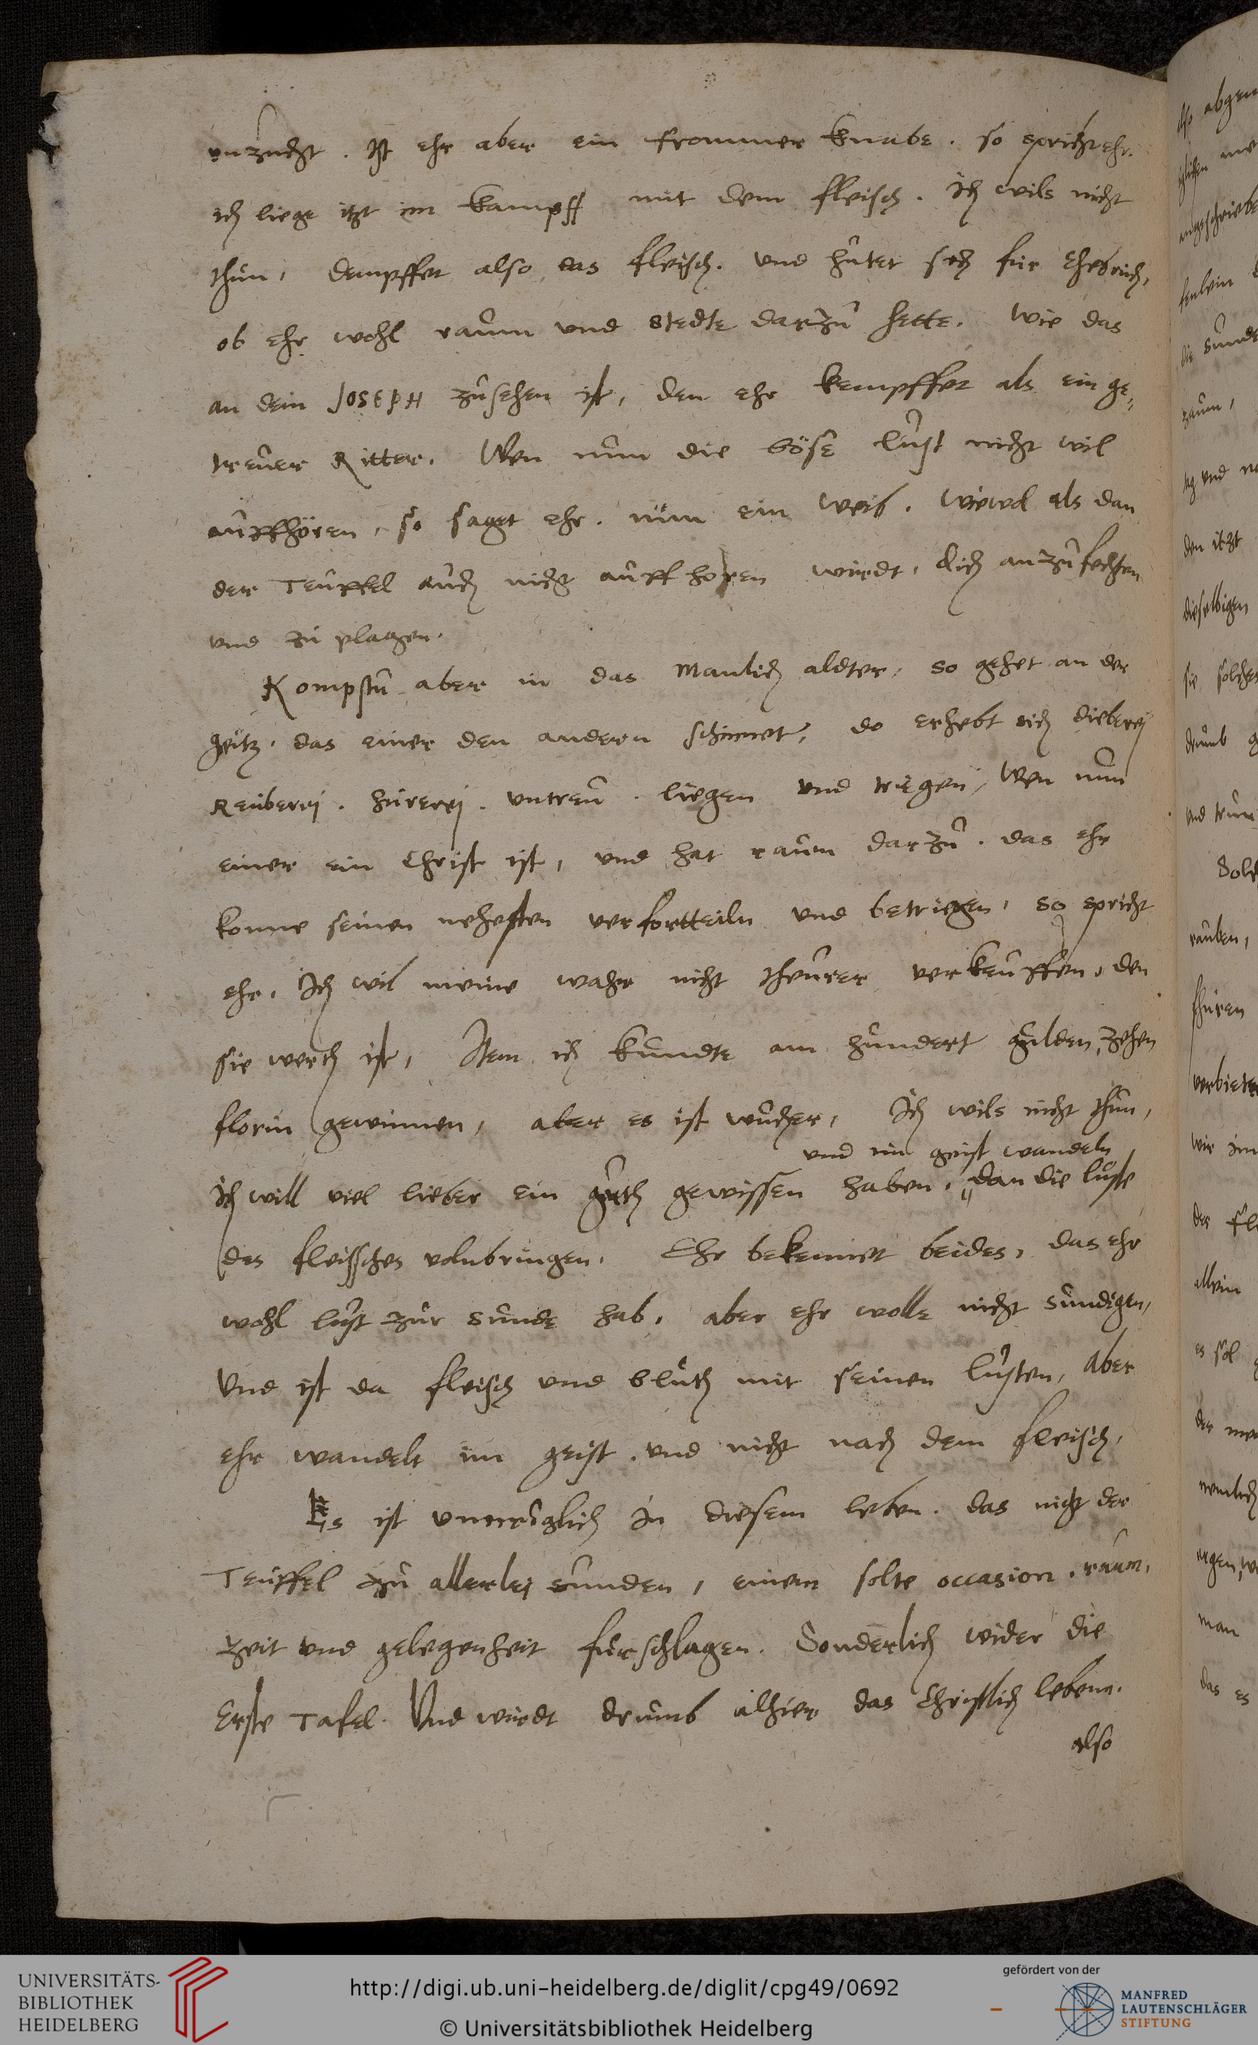 unzucht. Ist ehr aber ein frommer knabe. so spricht ehr.
ich liege itzt im kampff mit dem fleisch. Ich wils nicht
thun, dempffet also das fleisch. und hutet sich fur Ehebruch,
ob ehr wohl raum und stedte darzu hette. Wie das
an dem JOSEPH zusehen ist, den ehr kempffet als ein ge,
treuer Ritter. Wen nun die böse lust nicht wil
auffhören, so saget ehr. nim ein weib. wiewol als dan
der Teuffel auch nicht auff horen wirdt, dich anzufechten
und zu plagen.
Kompstu aber in das Manlich aldter, so gehet an der
geitz. das einer den andern schinnet, do erhebt sich dieberej
Reuberej. hurerej. untreu. liegen und triegen, Wen nun
einer ein Christ ist, und hat raum darzu. das ehr
konne seinen nehesten verfortteiln und betriegen, so spricht
ehr. Ich wil meine wahr nicht theurer verkeuffen, den
sie werth ist, Item ich kundte am hundert gulden, zehen
florin gewinnen, aber es ist wucher, Ich wils nicht thun,
und im geist wandeln
Ich will viel lieber ein guth gewissen haben, dan die luste
des fleisches volnbringen. Ehr bekennet beides, das ehr
wohl lust zur sunde hab, aber ehr wolle nicht sundigen,
Und ist da fleisch und bluth mit seinen lusten, aber
ehr wandelt im geist. und nicht nach dem fleisch,
Es ist unmuglich in diesem leben. das nicht der
Teuffel zu allerlej sunden, einem solte occasion. raum,
zeit und gelegenheit furschlagen. Sonderlich wider die
Erste Tafel. Und wirdt drumb alhier das Christlich lebenn.
also
UNIVERSITÄTS-
BIBLIOTHEK
HEIDELBERG
http://digi.ub.uni-heidelberg.de/diglit/cpg49/0692
© Universitätsbibliothek Heidelberg
gefördert von der
MANFRED
LAUTENSCHLÄGER
STIFTUNG